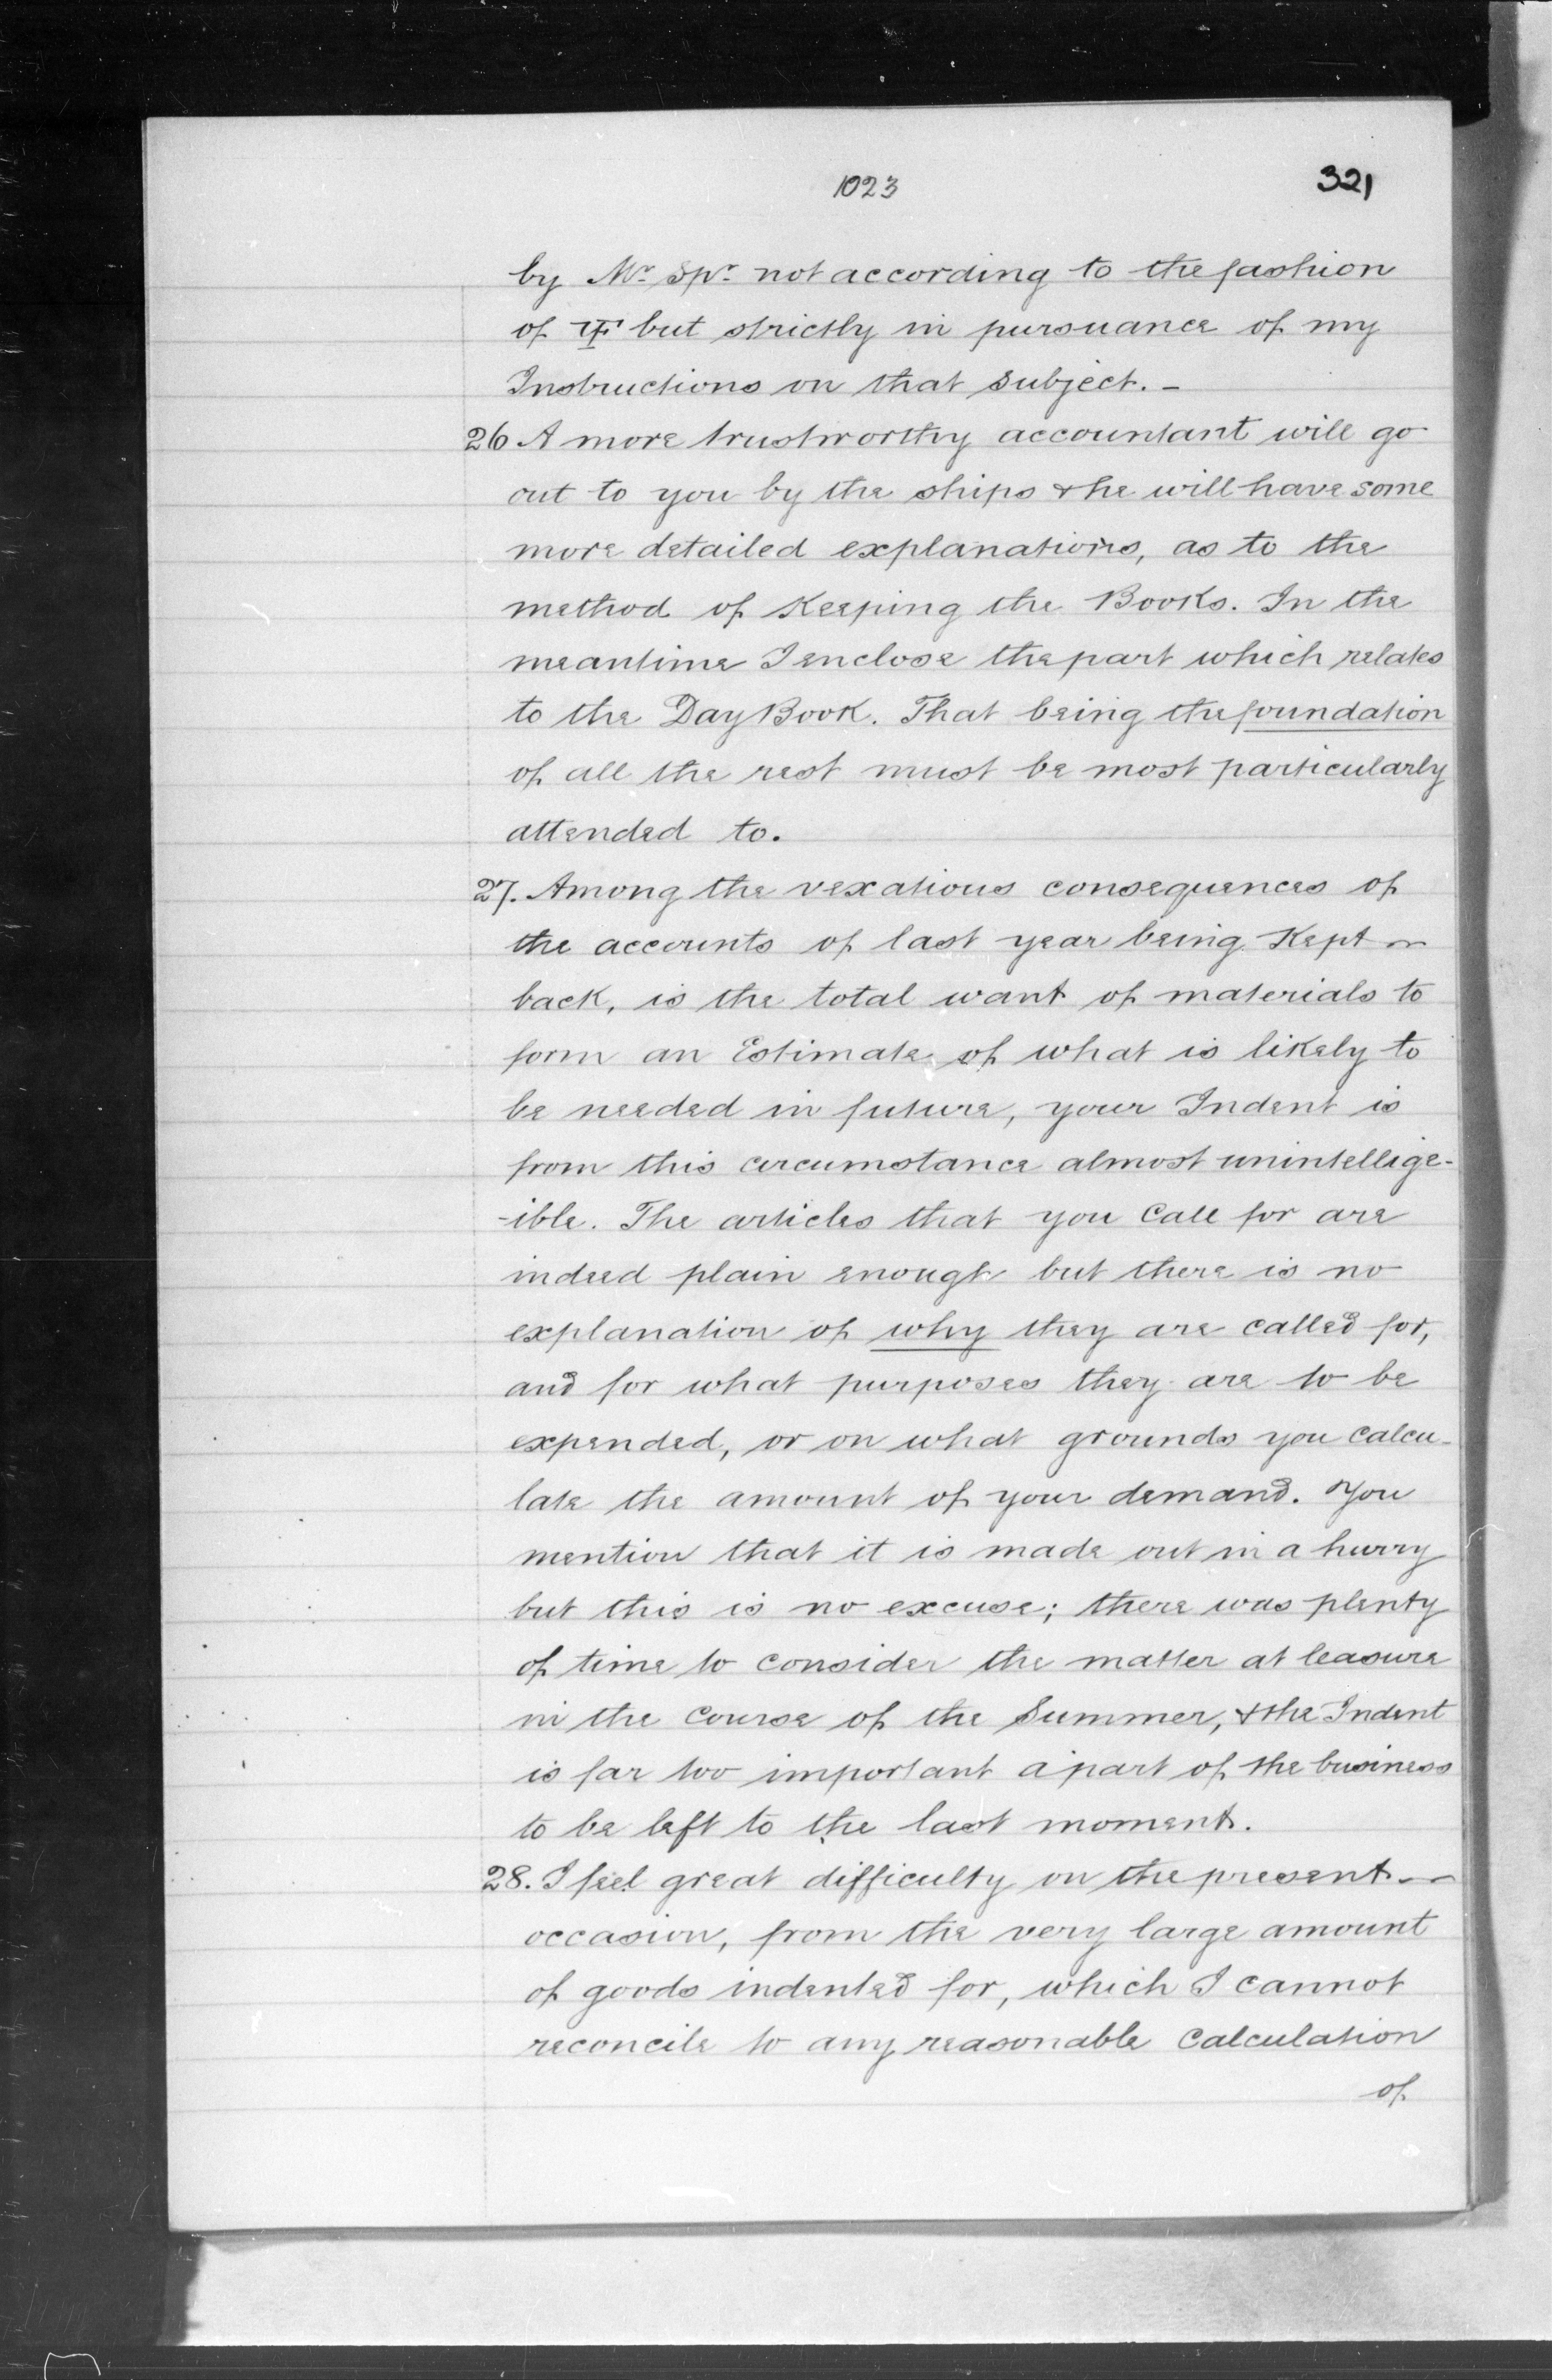 1023
321
by Mr. Spr. not according to the fashion
of but strictly in pursuance of my
Instructions on that subject. -
26 A more trustworthy accountant will go
out to you by the ships & he will have some
more detailed explanations, as to the
method of Keeping the Books. In the
meantime I enclose the part which relates
to the Day Book. That being the foundation
of all the rest must be most particularly
attended to.
27. Among the vexatious consequences of
the accounts of last year being Kept
back, is the total want of materials to
form an Estimate of what is likely to
be needed in future, your Indent is
from this circumstance almost unintellige-
-ible. The articles that you Call for are
indeed plain enough but there is no
explanation of why they are called for,
and for what purposes they are to be
expended, or on what grounds you calcu-
late the amount of your demand. You
mention that it is made out in a hurry
but this is no excuse; there was plenty
of time to consider the matter at leasure
in the course of the Summer, & the Indent
is far too important a part of the business
to be left to the last moment.
28. I feel great difficulty on the present -
occasion, from the very large amount
of goods indented for, which I cannot
reconcile to any reasonable Calculation
of